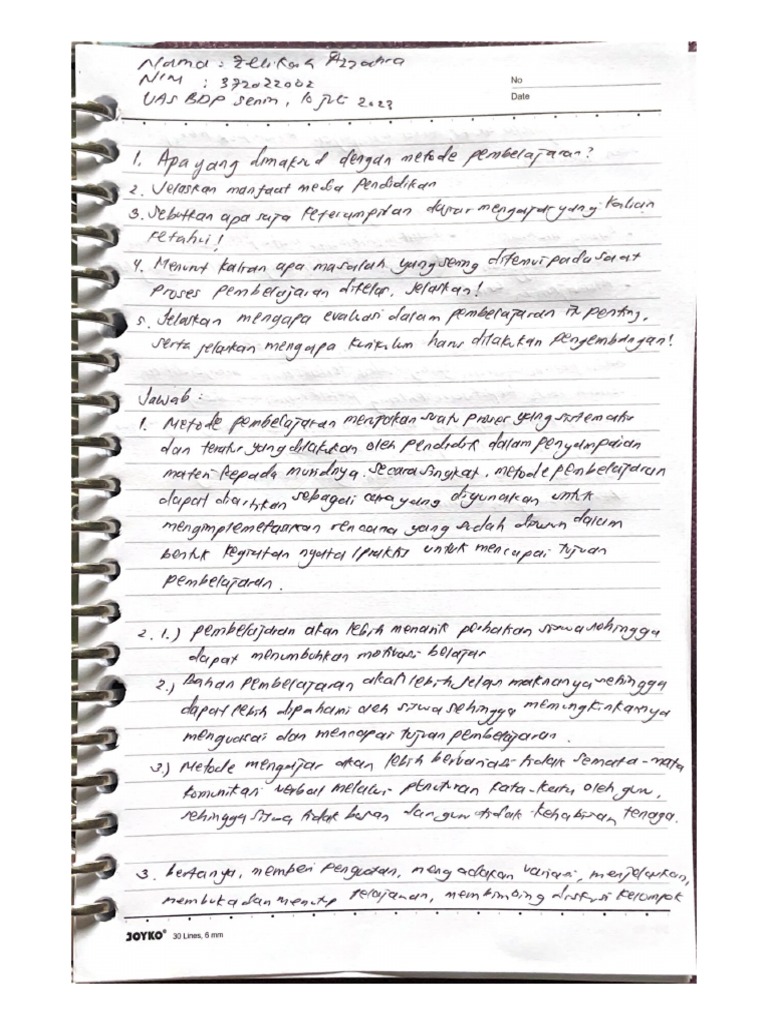 Nama : Zulikah Azzahra
NIM : 372022002
UAS BDP Senin, 10 juli 2023
No
Date
1. Apa yang dimaksud dengan metode pembelajaran?
2. Jelaskan manfaat media pendidikan
3. Sebutkan apa saja keterampilan dasar mengajar yang kalian
ketahui!
4. Menurut kalian apa masalah yang sering ditemui pada saat
proses pembelajaran dikelas, jelaskan!
5. Jelaskan mengapa evaluasi dalam pembelajaran itu penting,
serta jelaskan mengapa kurikulum harus dilakukan pengembangan!
Jawab :
1. Metode pembelajaran merupakan suatu proses yang sistematis
dan teratur yang dilakukan oleh pendidik dalam penyampaian
materi kepada muridnya. secara singkat, metode pembelajaran
dapat diartikan sebagai cara yang digunakan untuk
mengimplemetasikan rencana yang sudah disusun dalam
bentuk kegiatan nyata/praktis untuk mencapai tujuan
pembelajaran.
2. 1.) pembelajaran akan lebih menarik perhatian siswa sehingga
dapat menumbuhkan motivasi belajar
2.) Bahan pembelajaran akan lebih jelas maknanya sehingga
dapat lebih dipahami oleh siswa sehingga memungkinkannya
menguasai dan mencapai tujuan pembelajaran.
3.) Metode mengajar akan lebih bervariasi tidak semata-mata
komunikasi verbal melalui penuturan kata-kata oleh guru,
sehingga siswa tidak bosan dan guru tidak kehabisan tenaga.
3. bertanya, memberi penguatan, mengadakan variasi, menjelaskan,
membuka dan menutup pelajaran, membimbing diskusi kelompok
JOYKO® 30 Lines, 6 mm